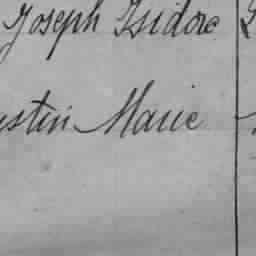 Joseph Isidore
ustin Marie